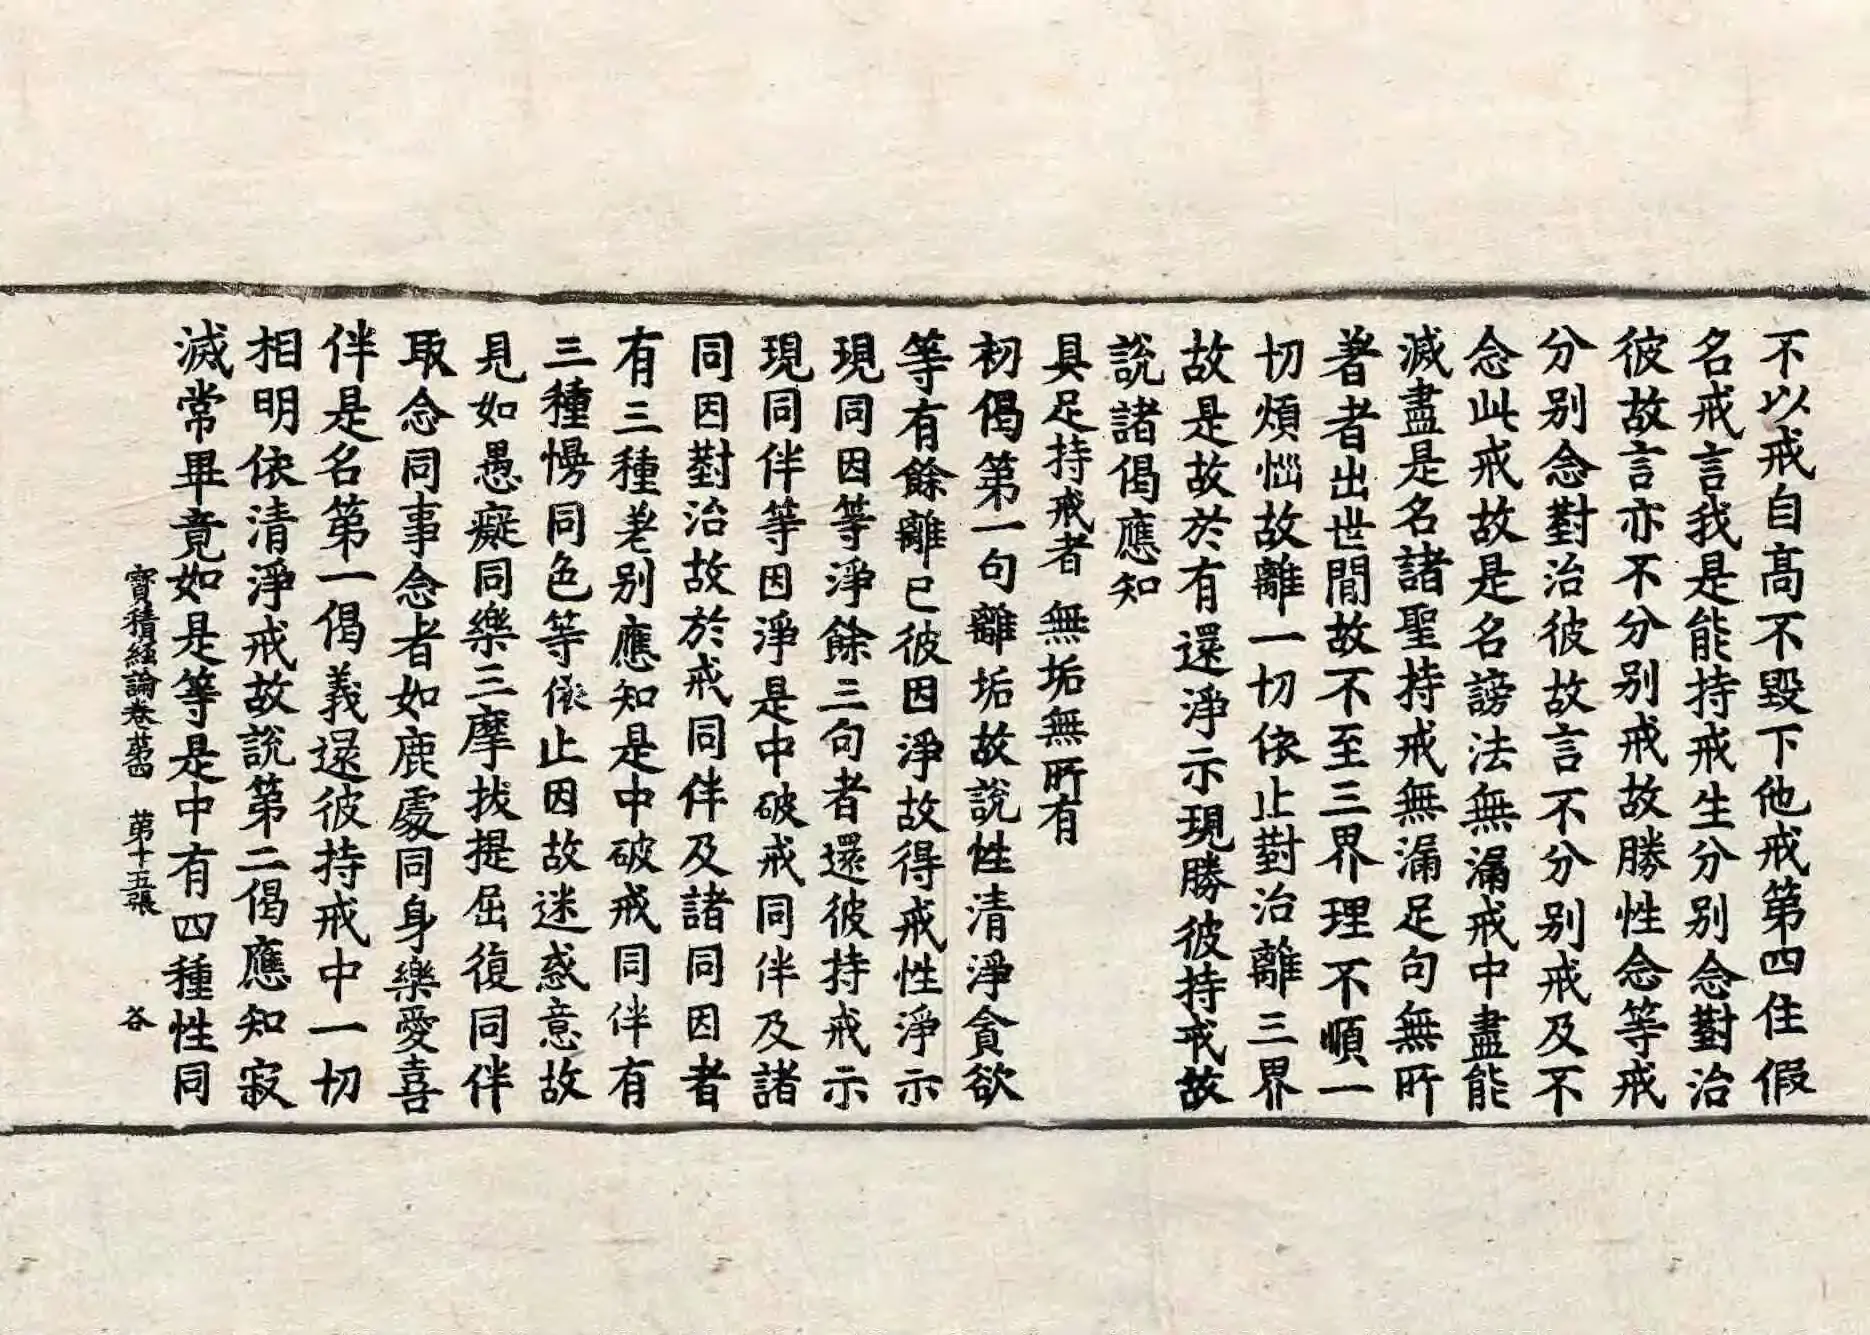 不以戒自高不毀下他戒第四住假
名戒言我是能持戒生分別念對治
彼故言亦不分別戒故勝性念等戒
分別念對治彼故言不分別戒及不
念此戒故是名謗法無漏戒中盡能
滅盡是名諸聖持戒無漏足句無所
著者出世間故不至三界理不順一
切煩惱故離一切依止對治離三界
故是故於有還淨示現勝彼持戒故
說諸偈應知
具足持戒者 無垢無所有
初偈第一句離垢故說性清淨貪欲
等有餘離已彼因淨故得戒性淨示
現同因等淨餘三句者還彼持戒示
現同伴等因淨是中破戒同伴及諸
同因對治故於戒同伴及諸同因者
有三種差別應知是中破戒同伴有
三種慢同色等依止因故迷惑意故
見如愚癡同樂三摩拔提屈復同伴
取念同事念者如鹿處同身樂愛喜
伴是名第一偈義還彼持戒中一切
相明依清淨戒故說第二偈應知寂
滅常畢竟如是等是中有四種性同
寶積經論卷第四 第十五張 谷